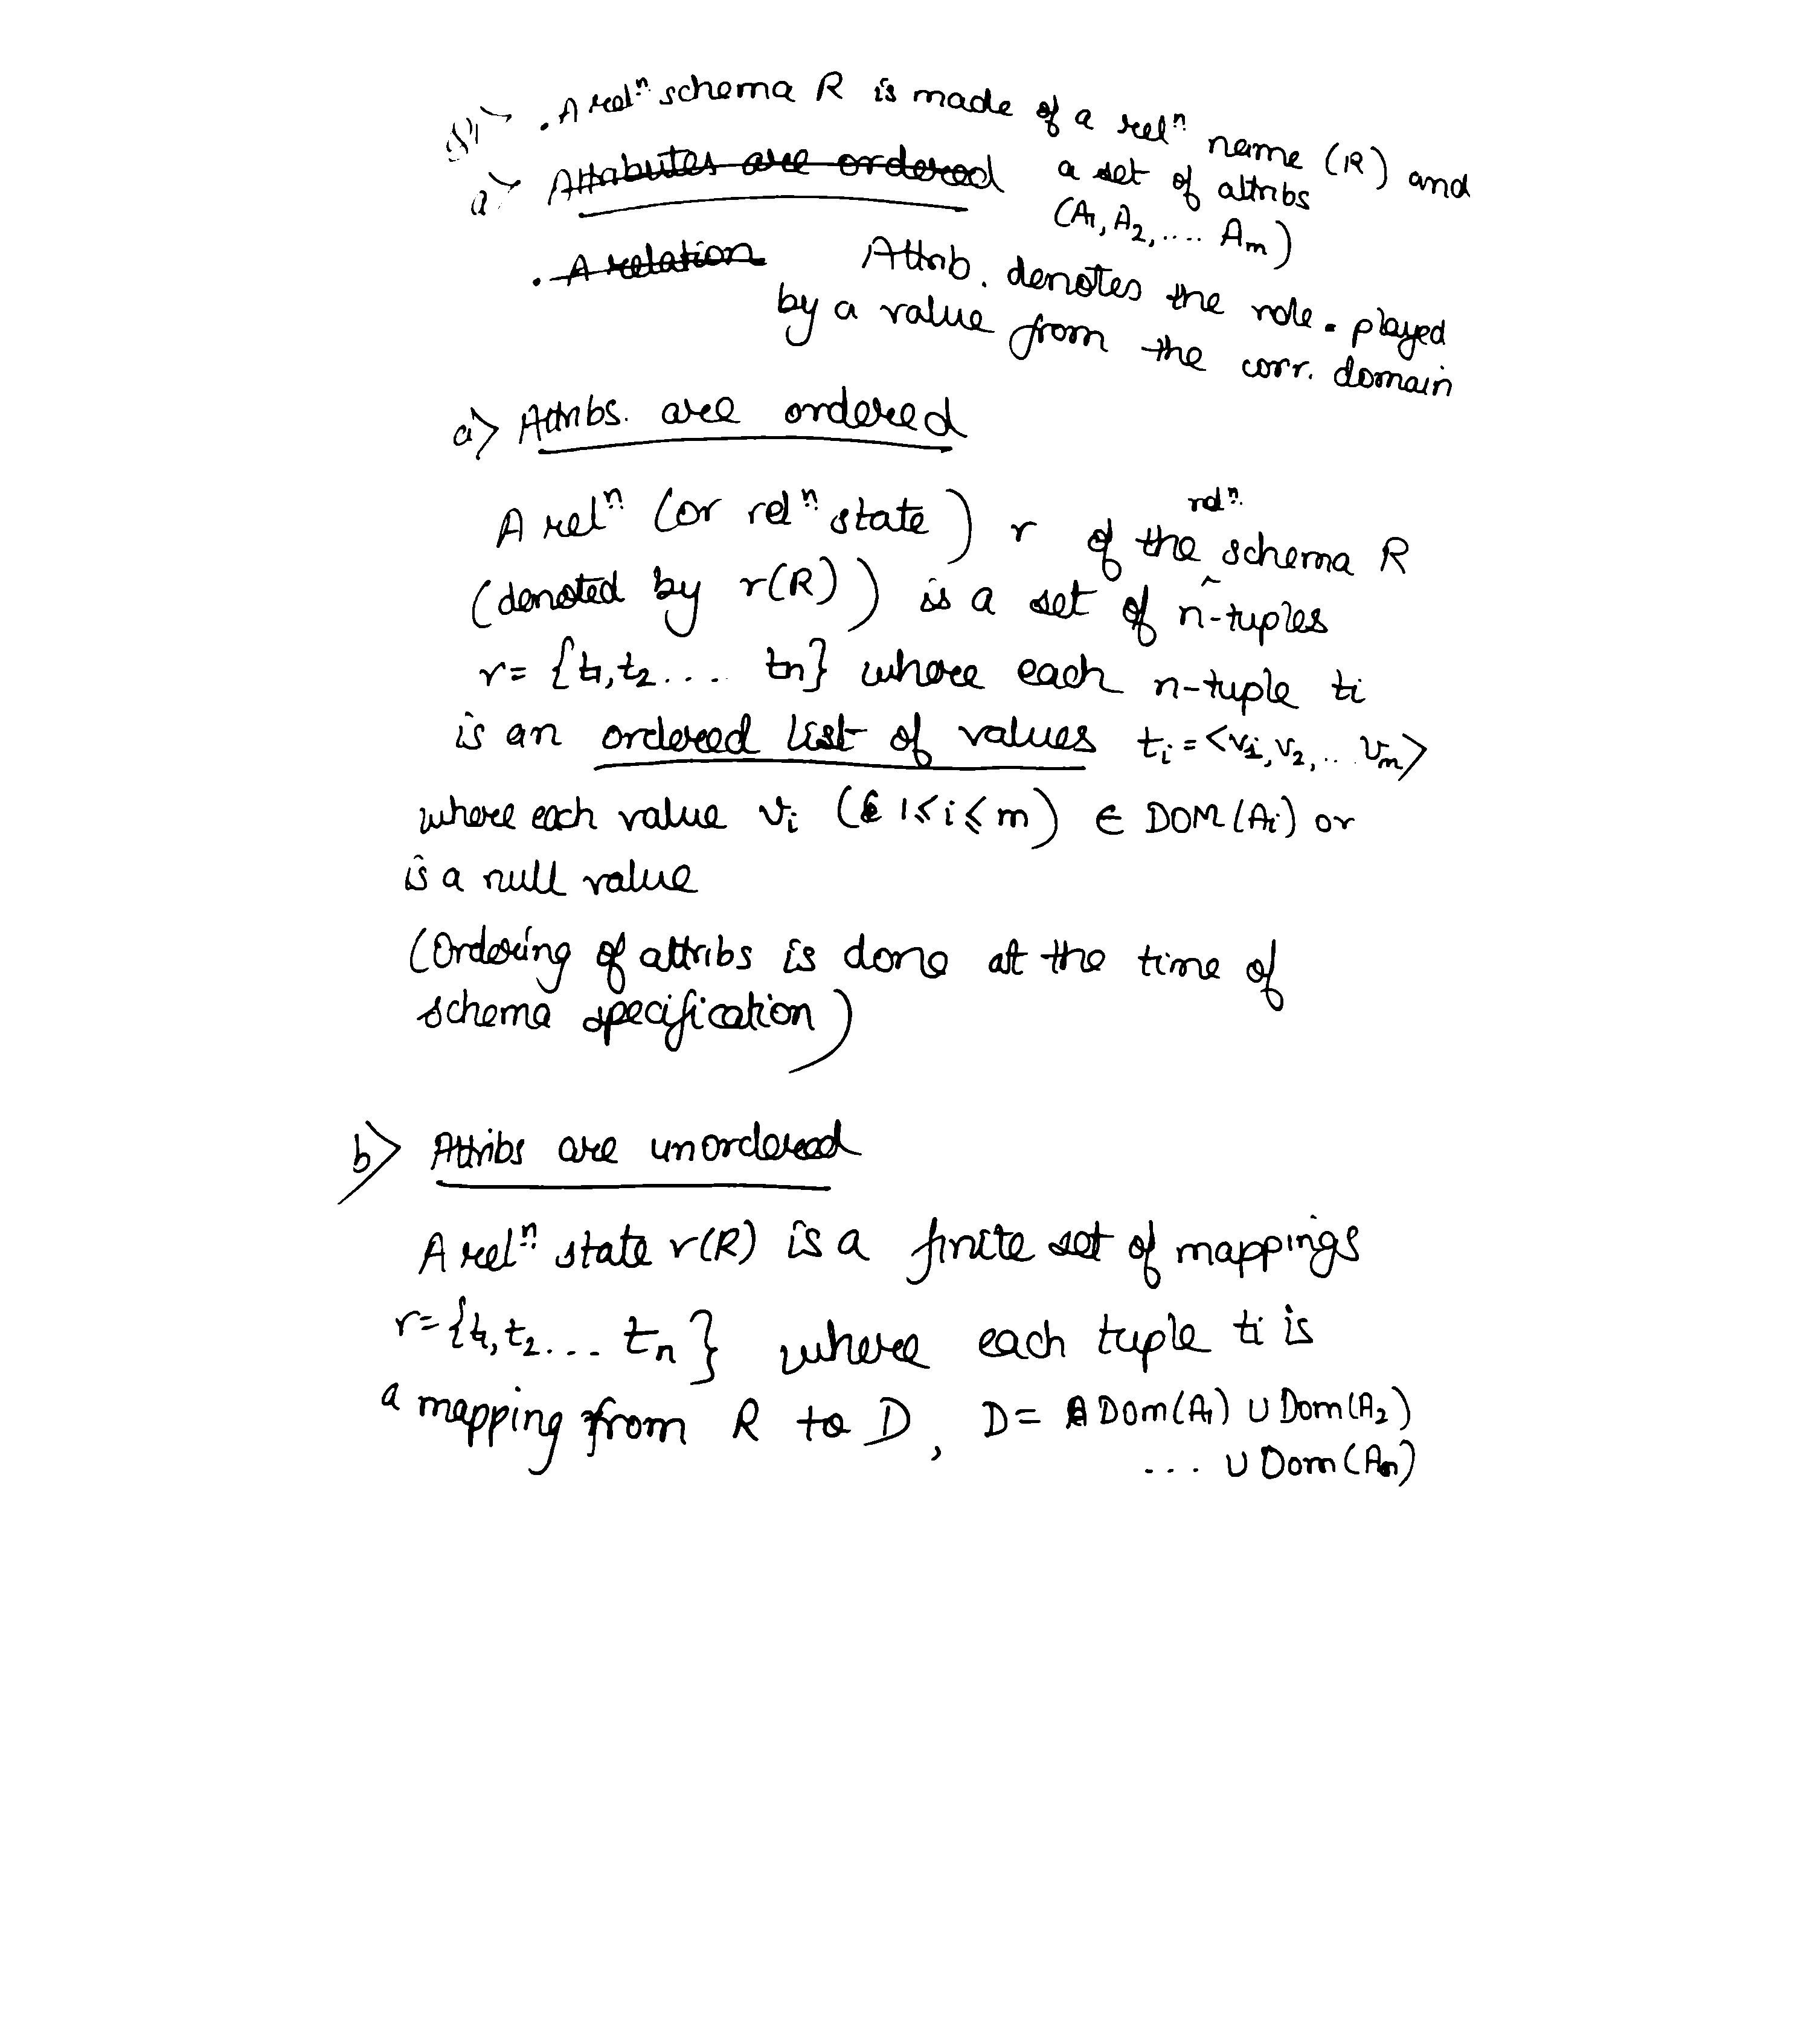 . A relⁿ schema R is made of a relⁿ name (R) and
a set of attribs
(A₁, A₂, .... Aₘ)
a> Attributes are ordered
. A relation
Attrib. denotes the role played
by a value from the corr. domain
a> Attribs. are ordered
A relⁿ (or relⁿ state) r of the relⁿ schema R
(denoted by r(R)) is a set of n-tuples
r= {t₁,t₂.... tn} where each n-tuple ti
is an ordered list of values tᵢ = <v₁, v₂, .. vₘ>
where each value vᵢ (1≤i≤m) ∈ DOM(Ai) or
is a null value
(Ordering of attribs is done at the time of
schema specification)
b> Attribs are unordered
A relⁿ state r(R) is a finite set of mappings
r={t₁,t₂... tₙ} where each tuple ti is
a mapping from R to D, D= Dom(A₁) ∪ Dom(A₂)
... ∪ Dom(Aₘ)